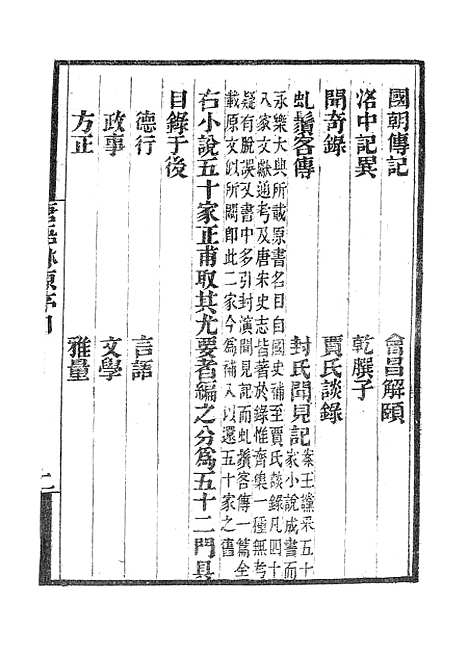 國朝傳記　會昌解頤
洛中記異　乾𦠆子
聞奇錄　賈氏談錄
虬鬚客傳　封氏聞見記案王讜采五十
家小說成書而
永樂大典所載原書名目自國史補至賈氏談錄凡四十
八家文獻通考及唐宋史志皆著於錄惟齊集一種無考
疑有脫誤又書中多引封演聞見記而虬鬚客傳一篇全
載原文似所闕即此二家今為補入以還五十家之舊
右小說五十家正甫取其尤要者編之分為五十二門具
目錄于後
德行　言語
政事　文學
方正　雅量